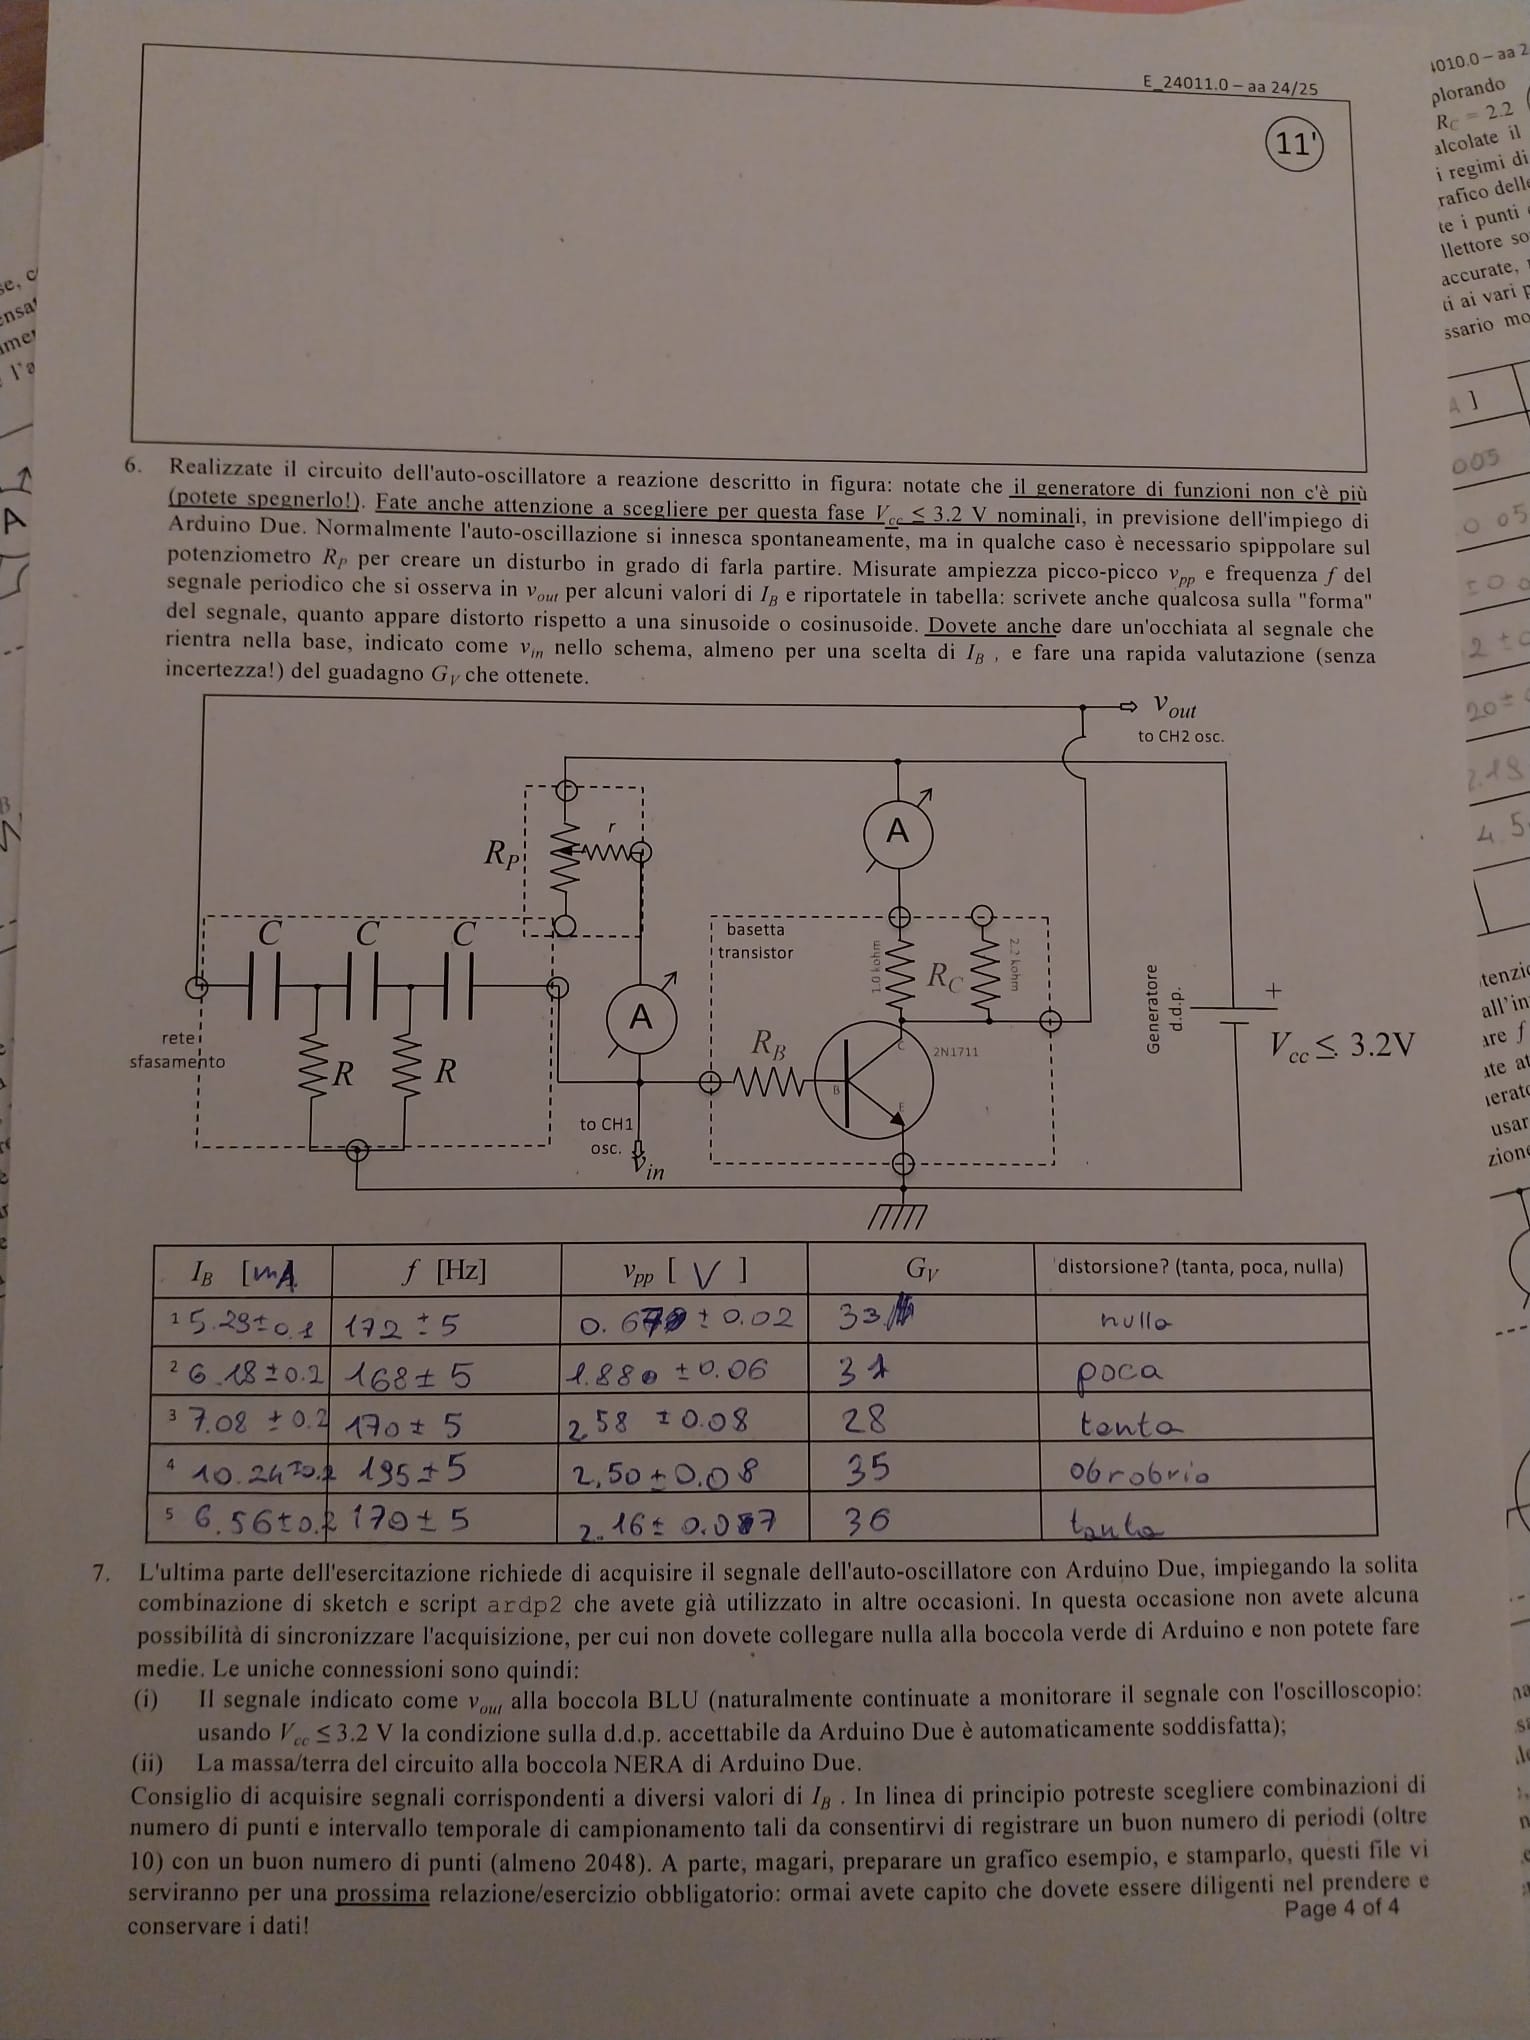 E_24011.0 – aa 24/25
11'
6. Realizzate il circuito dell'auto-oscillatore a reazione descritto in figura: notate che il generatore di funzioni non c'è più
(potete spegnerlo!). Fate anche attenzione a scegliere per questa fase Vcc ≤ 3.2 V nominali, in previsione dell'impiego di
Arduino Due. Normalmente l'auto-oscillazione si innesca spontaneamente, ma in qualche caso è necessario spippolare sul
potenziometro RP per creare un disturbo in grado di farla partire. Misurate ampiezza picco-picco vpp e frequenza f del
segnale periodico che si osserva in vout per alcuni valori di IB e riportatele in tabella: scrivete anche qualcosa sulla "forma"
del segnale, quanto appare distorto rispetto a una sinusoide o cosinusoide. Dovete anche dare un'occhiata al segnale che
rientra nella base, indicato come vin nello schema, almeno per una scelta di IB , e fare una rapida valutazione (senza
incertezza!) del guadagno GV che ottenete.
vout
to CH2 osc.
A
r
RP
C C C
basetta
transistor
1.0 kohm
RC
2.2 kohm
Generatore
d.d.p.
+
Vcc ≤ 3.2V
A
rete
sfasamento
R R
RB
C
2N1711
B
E
to CH1
osc.
vin
IB [mA] f [Hz] vpp [ V ] GV distorsione? (tanta, poca, nulla)
1 5.29±0.1 172 ± 5 ± 0.02 33 nulla
2 6.18±0.2 168± 5 1.880 ±0.06 31 poca
3 7.08 ± 0.2 170± 5 2.58 ± 0.08 28 tanta
4 10.24±0.2 195±5 2.50±0.08 35 obrobrio
5 6.56±0.2 170±5 2.16± 0.07 36 tanta
7. L'ultima parte dell'esercitazione richiede di acquisire il segnale dell'auto-oscillatore con Arduino Due, impiegando la solita
combinazione di sketch e script ardp2 che avete già utilizzato in altre occasioni. In questa occasione non avete alcuna
possibilità di sincronizzare l'acquisizione, per cui non dovete collegare nulla alla boccola verde di Arduino e non potete fare
medie. Le uniche connessioni sono quindi:
(i) Il segnale indicato come vout alla boccola BLU (naturalmente continuate a monitorare il segnale con l'oscilloscopio:
usando Vcc ≤ 3.2 V la condizione sulla d.d.p. accettabile da Arduino Due è automaticamente soddisfatta);
(ii) La massa/terra del circuito alla boccola NERA di Arduino Due.
Consiglio di acquisire segnali corrispondenti a diversi valori di IB . In linea di principio potreste scegliere combinazioni di
numero di punti e intervallo temporale di campionamento tali da consentirvi di registrare un buon numero di periodi (oltre
10) con un buon numero di punti (almeno 2048). A parte, magari, preparare un grafico esempio, e stamparlo, questi file vi
serviranno per una prossima relazione/esercizio obbligatorio: ormai avete capito che dovete essere diligenti nel prendere e
conservare i dati!
Page 4 of 4